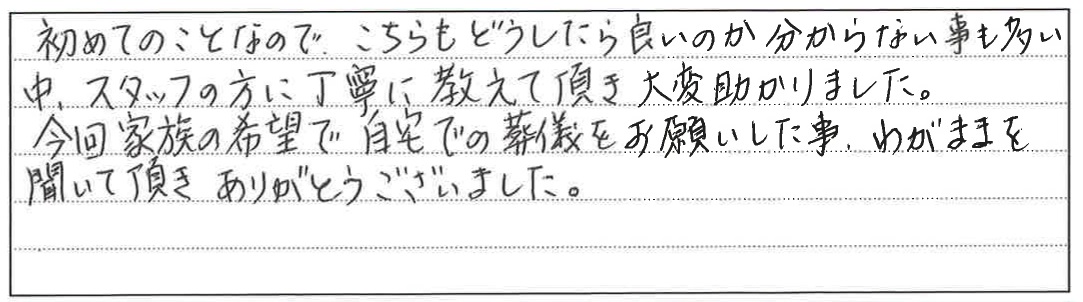 初めてのことなので、こちらもどうしたら良いのか分からない事も多い
中、スタッフの方に丁寧に教えて頂き大変助かりました。
今回家族の希望で自宅での葬儀をお願いした事、わがままを
聞いて頂きありがとうございました。